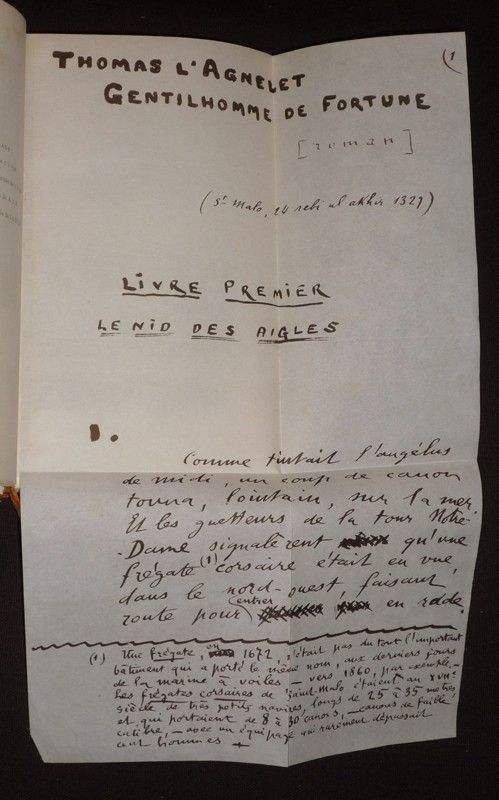 (1
THOMAS L'AGNELET
GENTILHOMME DE FORTUNE
[roman]
(St Malo, 24 rebi ul akhir 1329)
LIVRE PREMIER
LE NID DES AIGLES
1.
Comme tintait l'angélus
de midi, un coup de canon
tonna, lointain, sur la mer.
Et les guetteurs de la tour Notre-
-Dame signalèrent qu'une
frégate (1) corsaire était en vue,
dans le nord-ouest, faisant
route pour entrer en rade.
(1) Une frégate, en 1672, n'était pas du tout l'important
bâtiment qui a porté le même nom, aux derniers jours
de la marine à voiles – vers 1860, par exemple. –
Les frégates corsaires de Saint Malo étaient au XVIIe
siècle de très petits navires, longs de 25 à 35 mètres,
et qui portaient de 8 à 30 canons, – canons de faible
calibre, – avec un équipage qui rarement dépassait
cent hommes